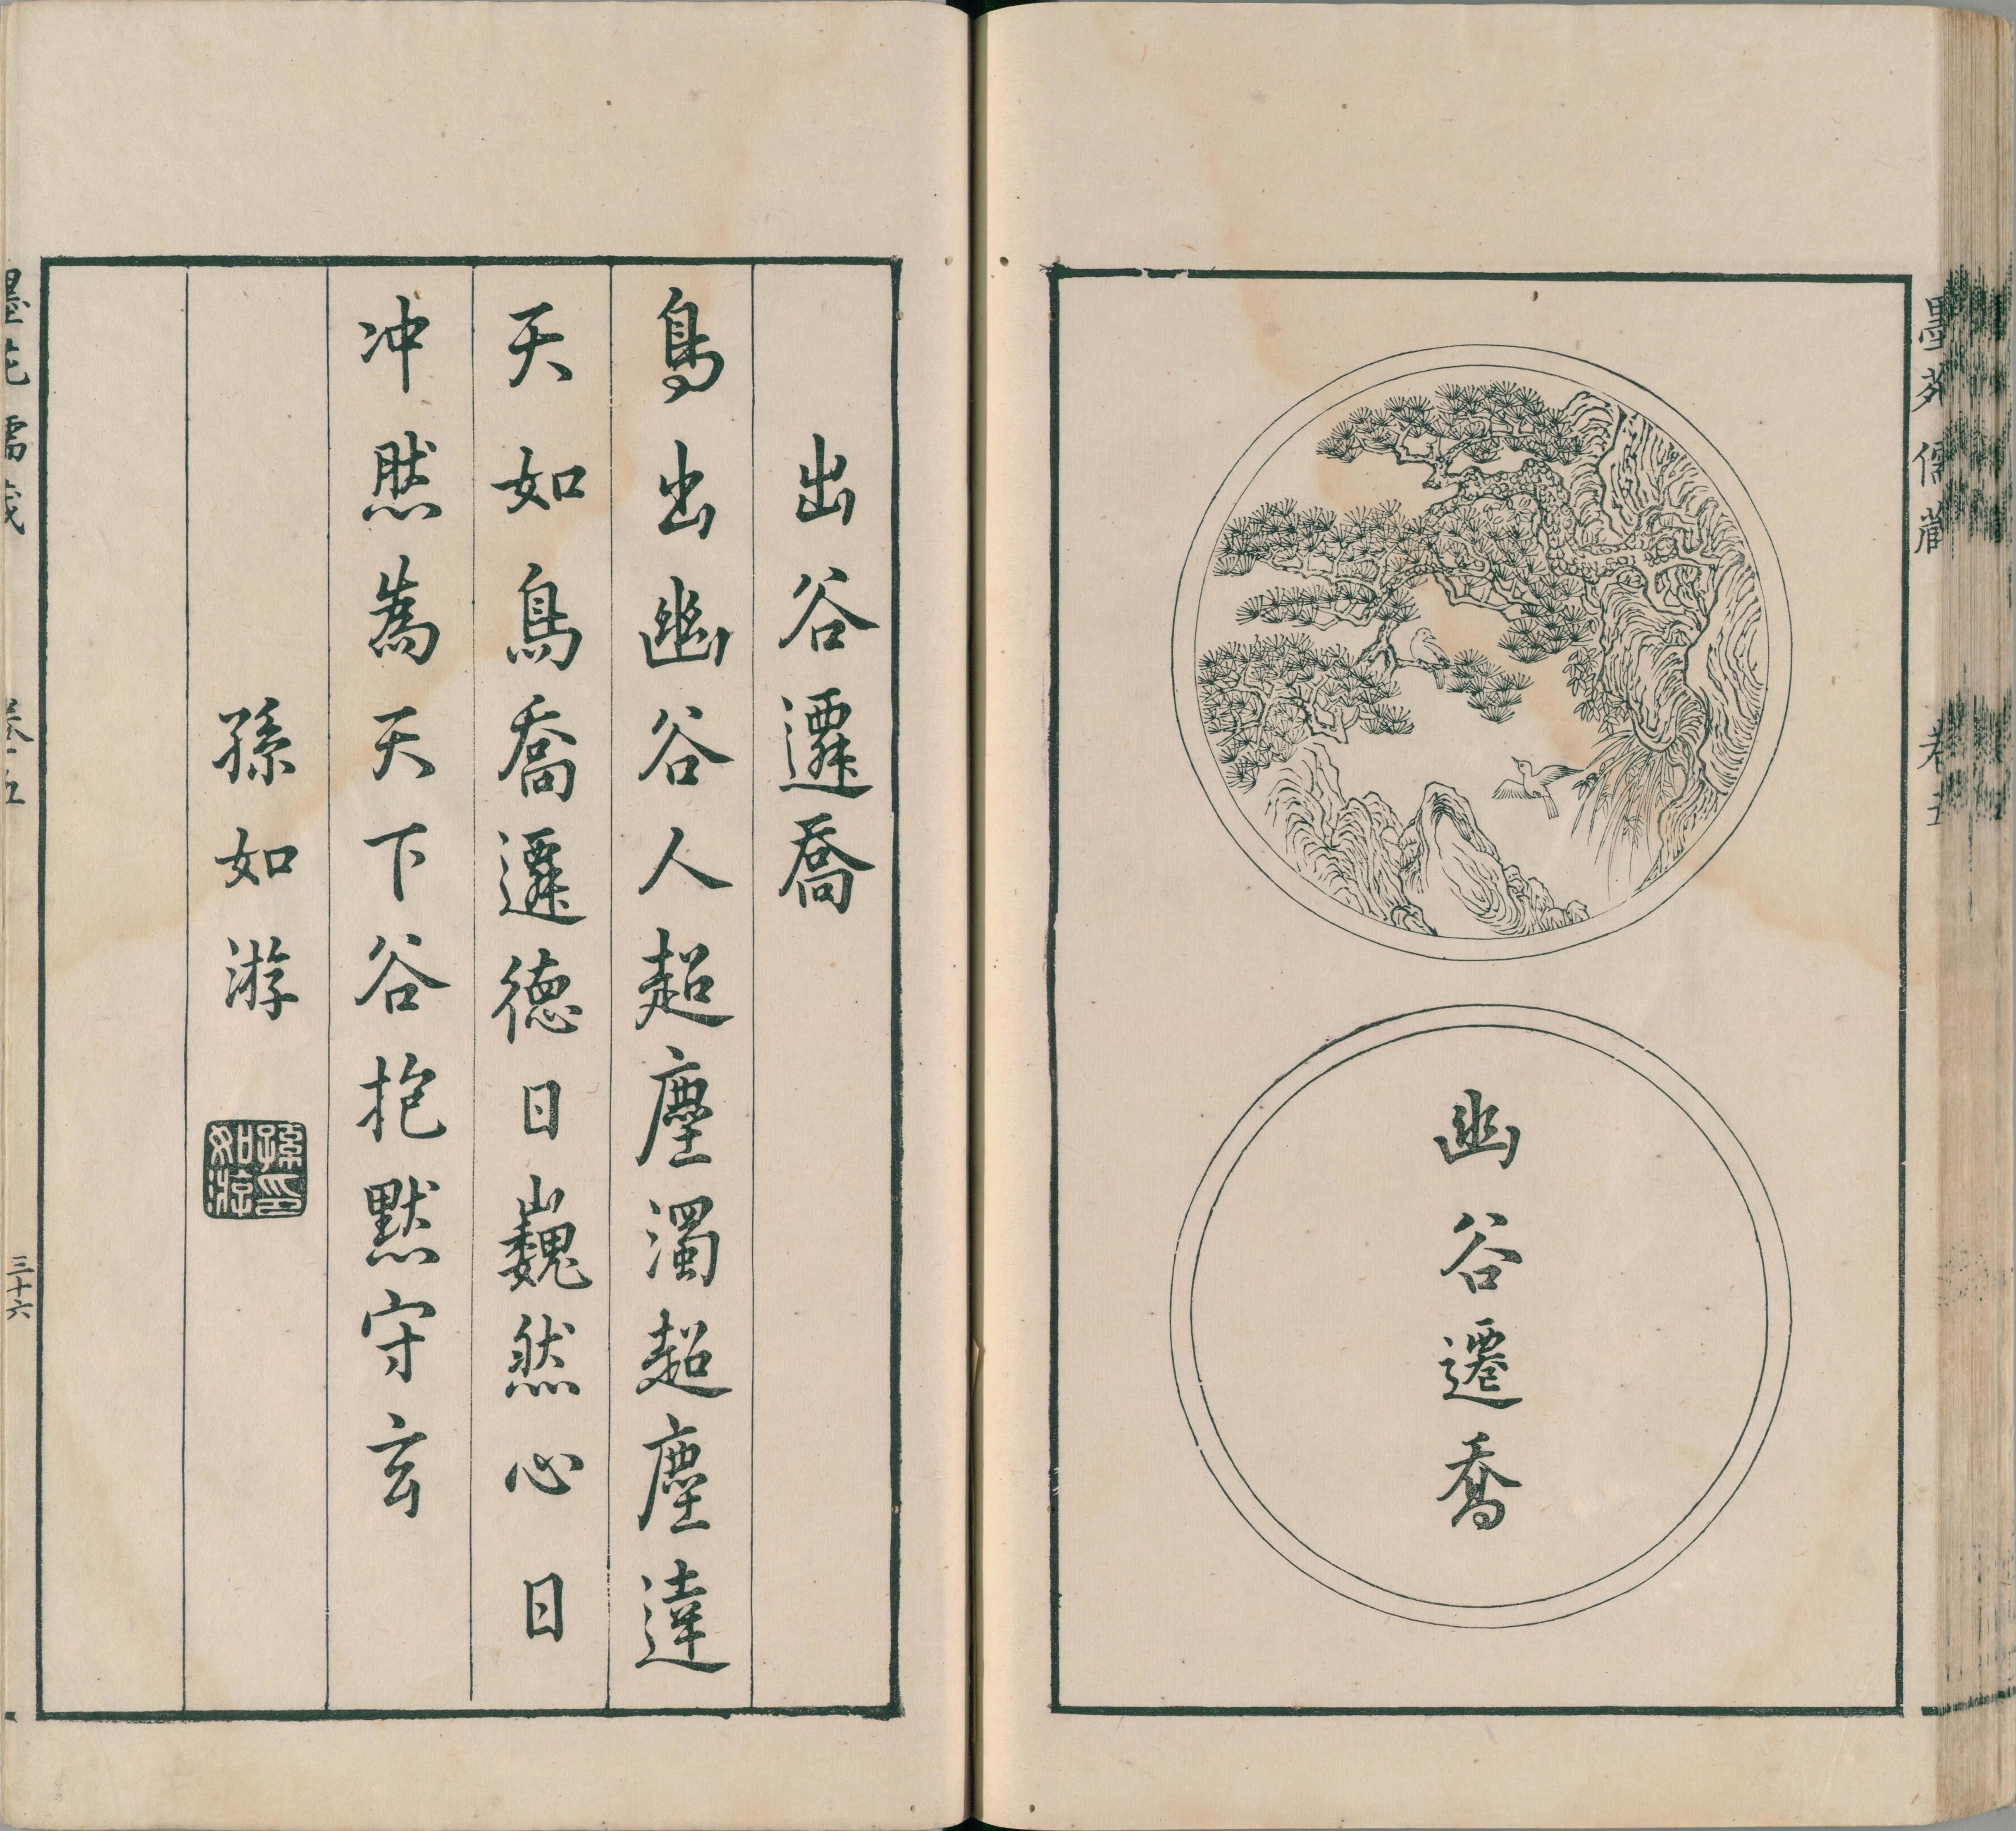 墨苑 儒藏 卷五
幽谷遷喬
出谷遷喬
鳥出幽谷人超塵濁超塵達
天如鳥喬遷德日巍然心日
冲然為天下谷抱默守玄
孫如游
孫印如游
卷五
三十六